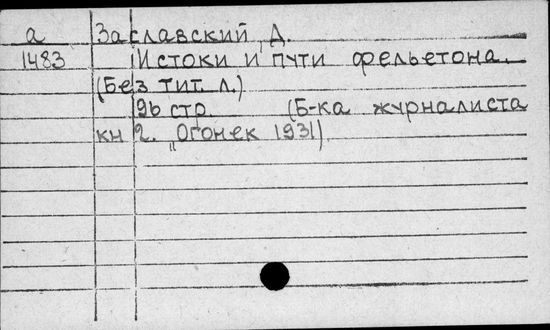 а Заславский, Д.
1483 Истоки и пути фельетона.
(Без тит. л.)
96 стр. (Б-ка журналиста
кн 2. „Огонек 1931)